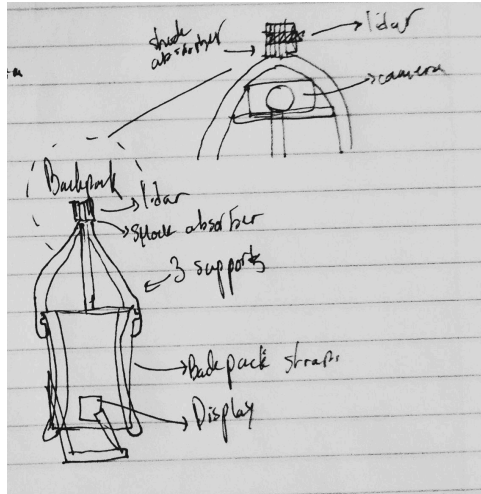 shock
absorber
lidar
camera
Backpack
lidar
shock absorber
3 supports
Backpack straps
Display